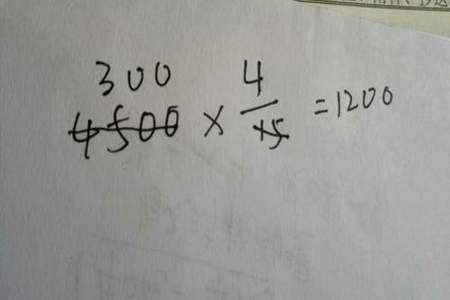 300 4
4500 × — = 1200
15